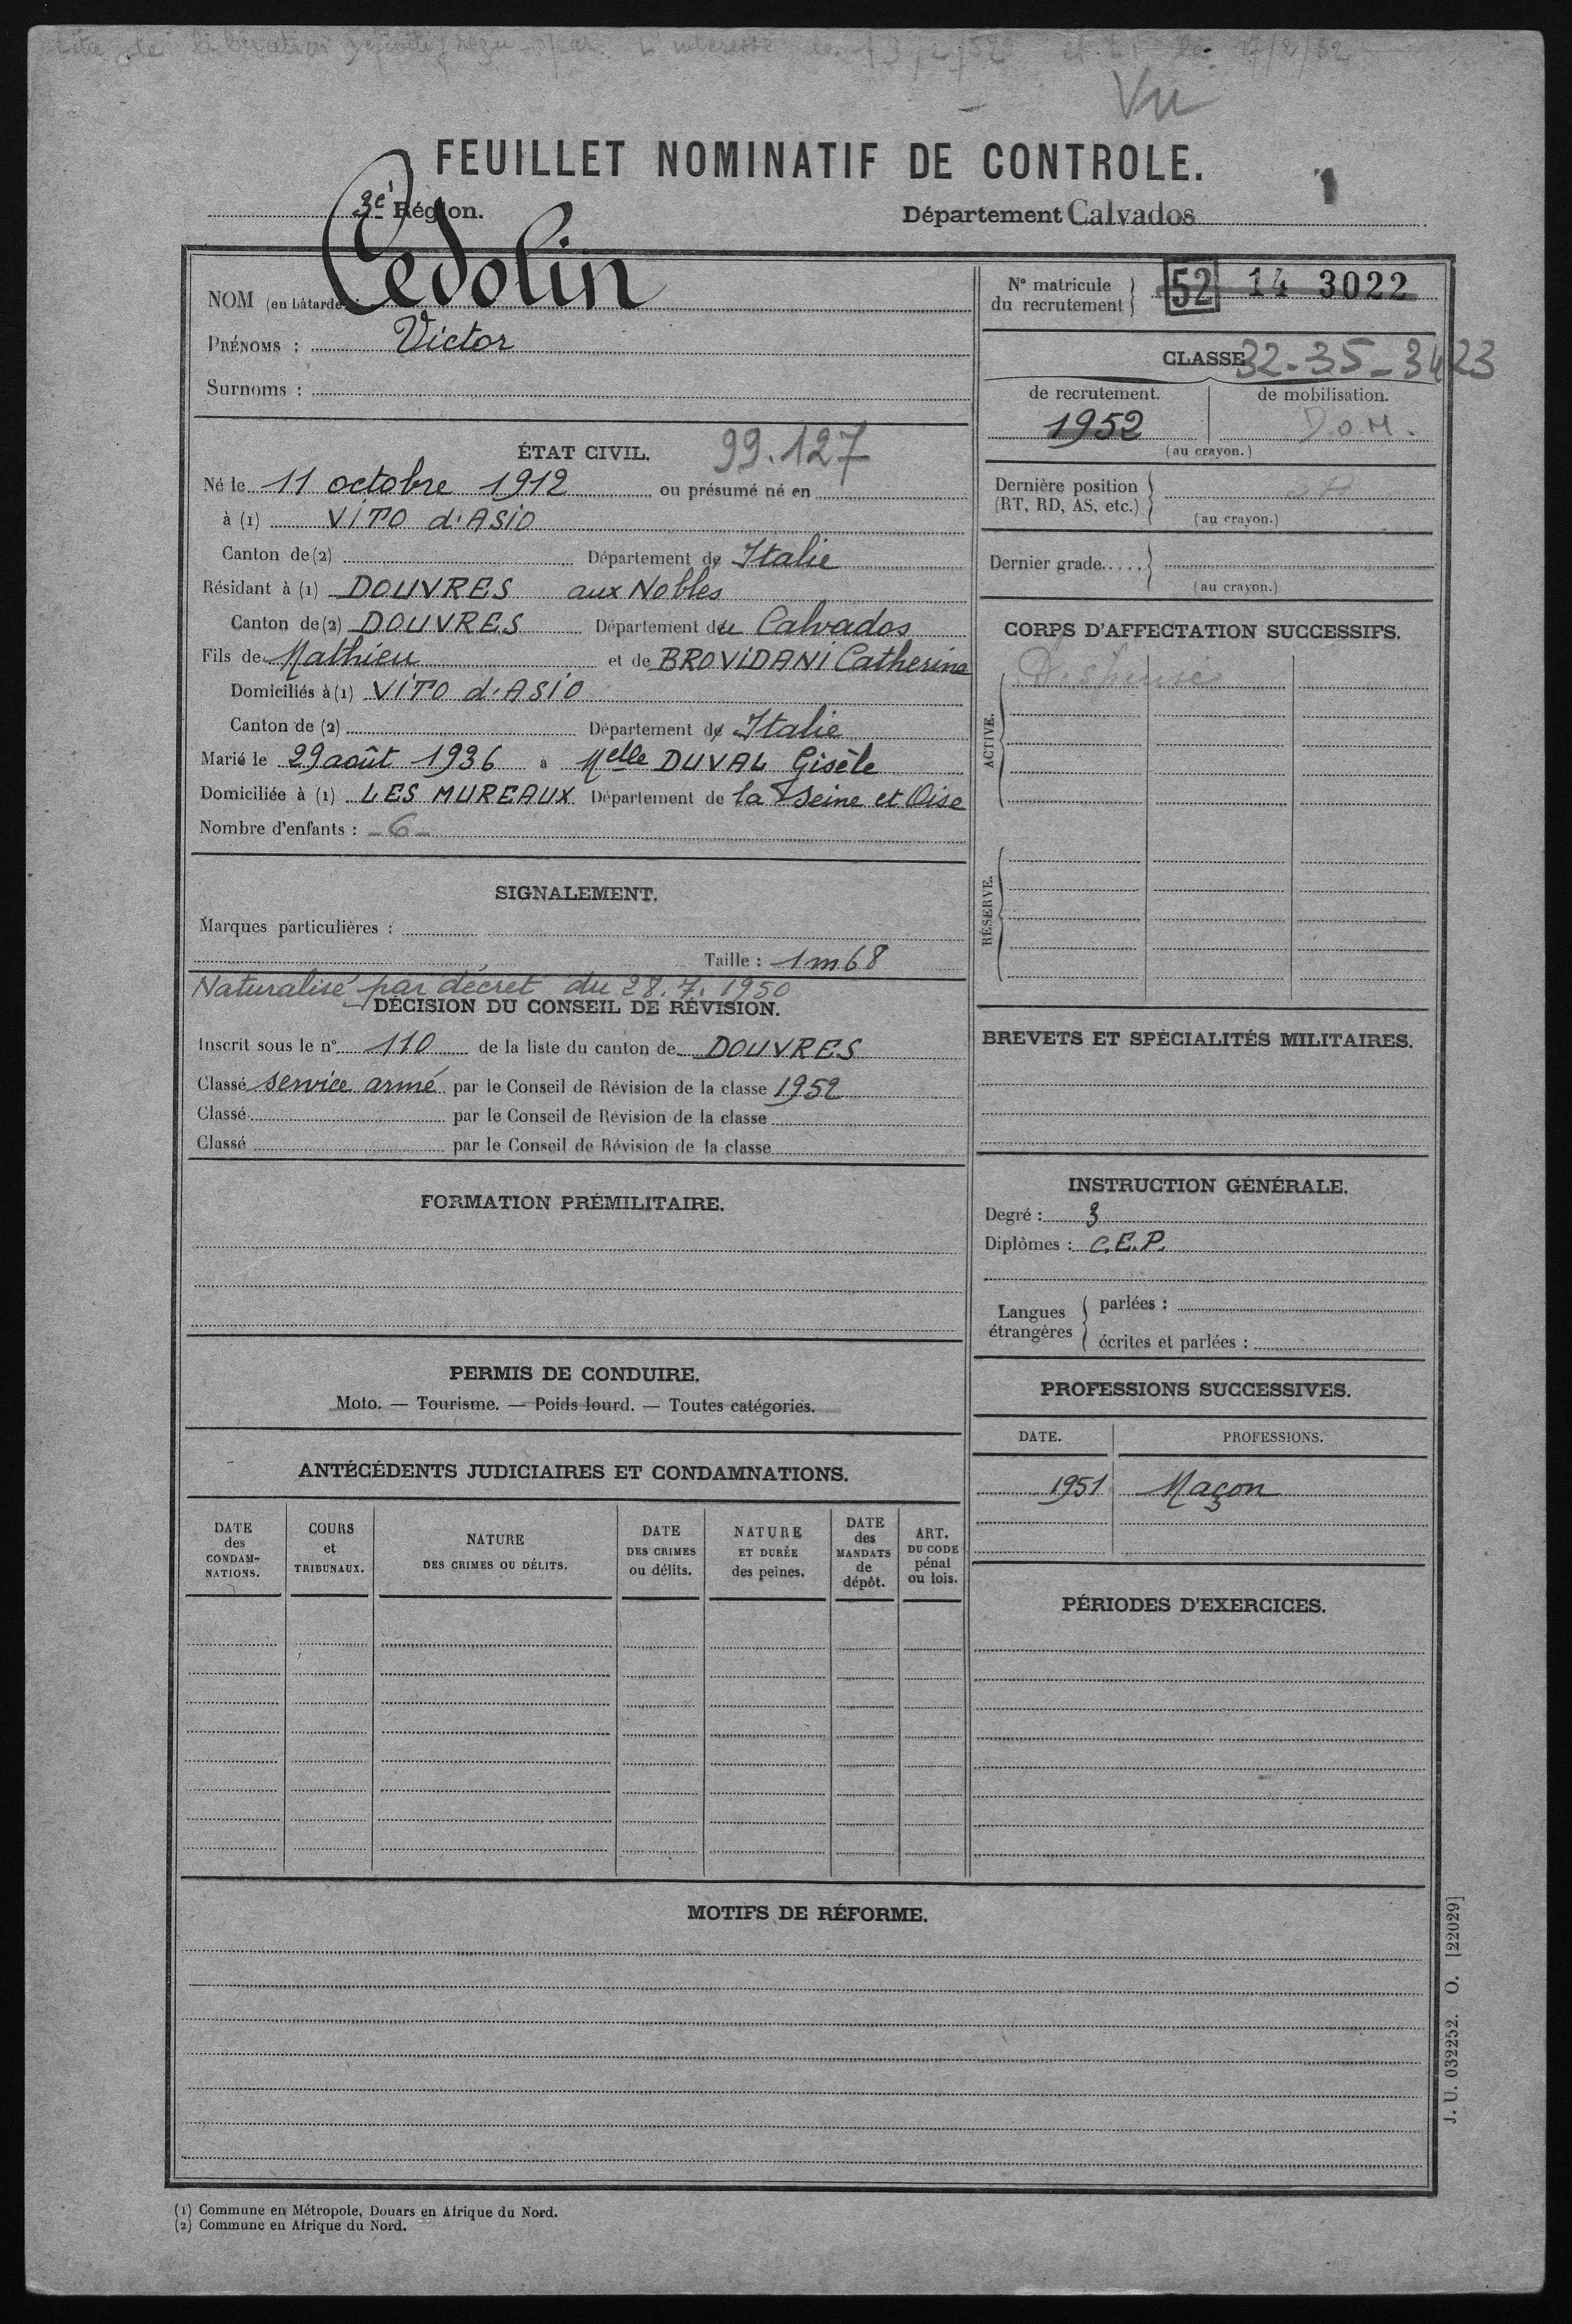 titre de libération reçu par l'interessé le
Vu
FEUILLET NOMINATIF DE CONTROLE.
1
3e Région.
Département Calvados
NOM (en bâtarde) : Cedolin
PRÉNOMS : Victor
Surnoms :
ÉTAT CIVIL. 99.127
Né le 11 octobre 1912 ou présumé né en
à (1) VITO d'ASIO
Canton de (2) Département de Italie
Résidant à (1) DOUVRES aux Nobles
Canton de (2) DOUVRES Département du Calvados
Fils de Mathieu et de BROVIDANI Catherina
Domiciliés à (1) VITO d'ASIO
Canton de (2) Département de Italie
Marié le 29 août 1936 à Melle DUVAL Gisèle
Domiciliée à (1) LES MUREAUX Département de la Seine et Oise
Nombre d'enfants : - 6 -
SIGNALEMENT.
Marques particulières :
Taille : 1m68
Naturalisé par décret du 28.7.1950
DÉCISION DU CONSEIL DE RÉVISION.
Inscrit sous le n° 110 de la liste du canton de DOUVRES
Classé service armé par le Conseil de Révision de la classe 1952
Classé par le Conseil de Révision de la classe
Classé par le Conseil de Révision de la classe
FORMATION PRÉMILITAIRE.
PERMIS DE CONDUIRE.
Moto. — Tourisme. — Poids lourd. — Toutes catégories.
ANTÉCÉDENTS JUDICIAIRES ET CONDAMNATIONS.
DATE des CONDAM-NATIONS.
COURS et TRIBUNAUX.
NATURE DES CRIMES OU DÉLITS.
DATE DES CRIMES ou délits.
NATURE ET DURÉE des peines.
DATE des MANDATS de dépôt.
ART. DU CODE pénal ou lois.
N° matricule du recrutement 52 14 3022
CLASSE 32-35-3423
de recrutement. de mobilisation.
1952 D.O.M.
(au crayon.)
Dernière position (RT, RD, AS, etc.)
(au crayon.)
Dernier grade.....
(au crayon.)
CORPS D'AFFECTATION SUCCESSIFS.
ACTIVE. Dispensé
RÉSERVE.
BREVETS ET SPÉCIALITÉS MILITAIRES.
INSTRUCTION GÉNÉRALE.
Degré : 3
Diplômes : C.E.P.
Langues étrangères
parlées :
écrites et parlées :
PROFESSIONS SUCCESSIVES.
DATE. PROFESSIONS.
1951 Maçon
PÉRIODES D'EXERCICES.
MOTIFS DE RÉFORME.
J. U. 032252. O. [22029]
(1) Commune en Métropole, Douars en Afrique du Nord.
(2) Commune en Afrique du Nord.